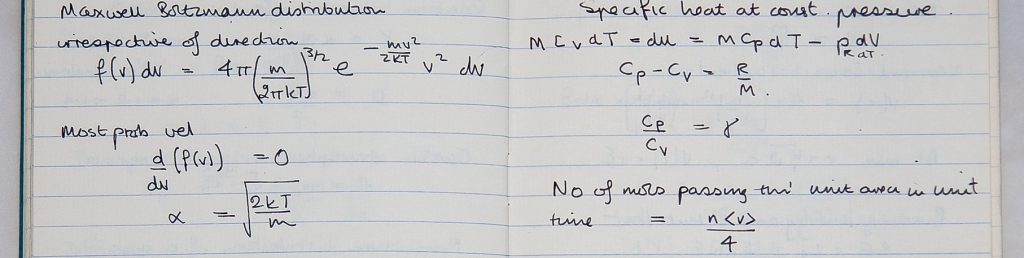 Maxwell Boltzmann distribution
irrespective of direction
f(v) dv = 4π(m/2πkT)^3/2 e^-mv²/2kT v² dv
Most prob vel
d/dv (f(v)) = 0
α = √(2kT/m)
Specific heat at const. pressure
M Cv dT = du = M Cp dT - p dV
R dT.
Cp - Cv = R/M.
Cp/Cv = γ
No of mols passing thro' unit area in unit
time = n<v>/4